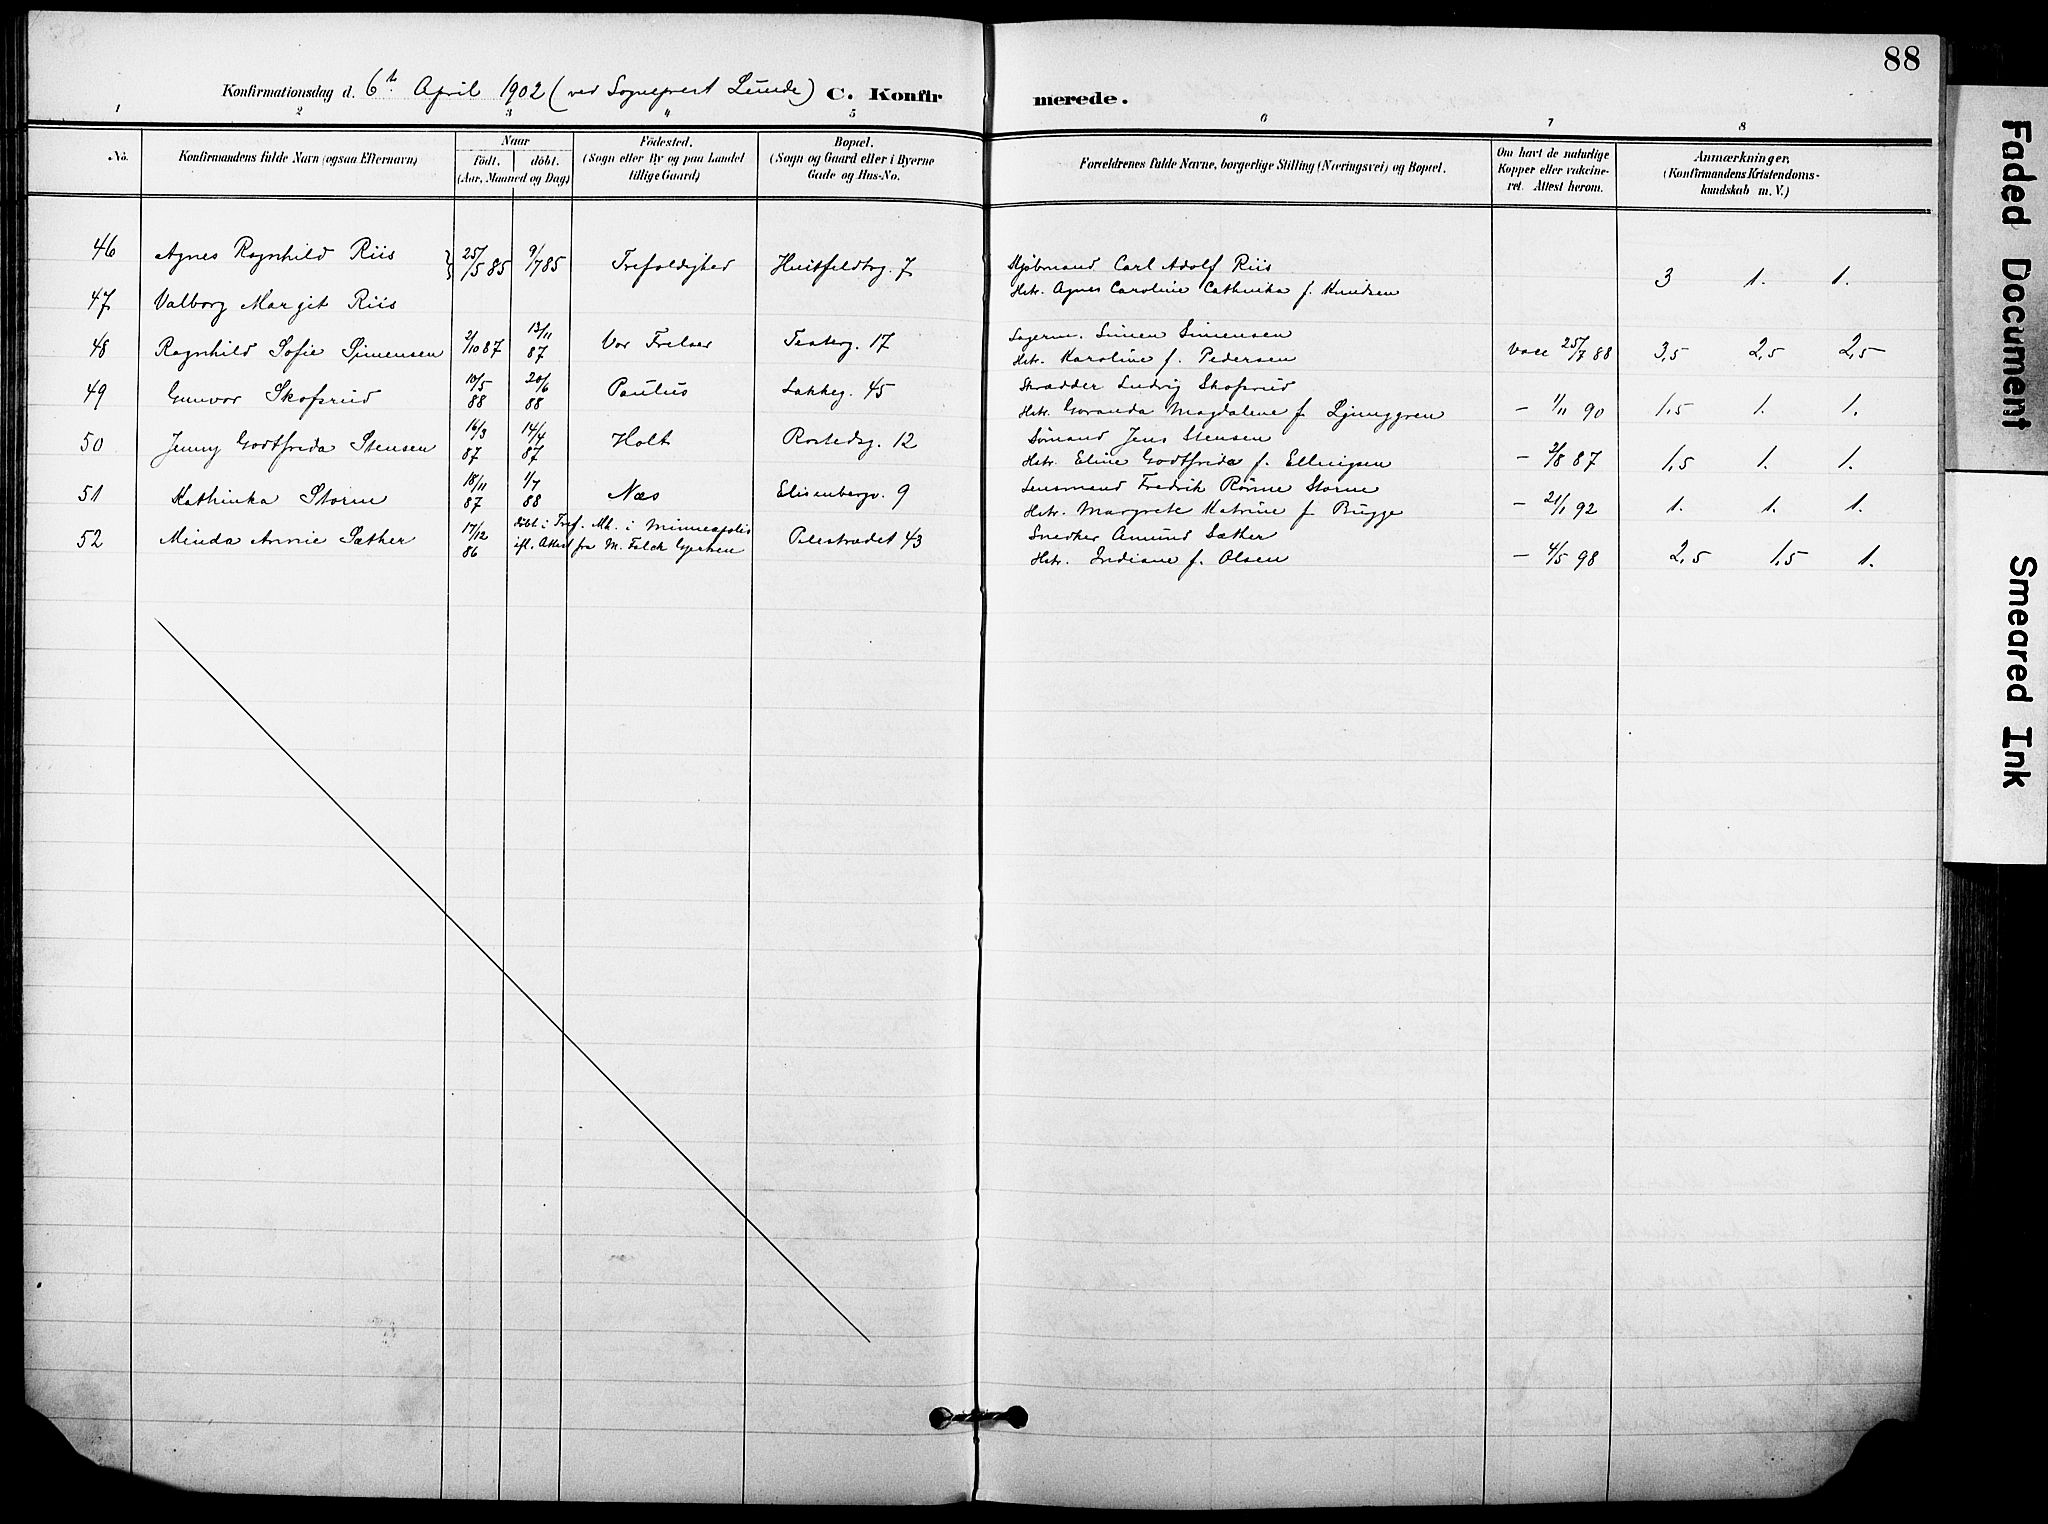 88
Konfirmationsdag d. 6te April 1902 (ved Sogneprest Lunde) C. Konfir merede.
1 2 3 4 5 6 7 8
No. Konfirmandens fulde Navn (ogsaa Efternavn) Naar födt. döbt. (Aar, Maaned og Dag)
Födested. (Sogn eller By og paa Landet tillige Gaard)
Bopæl. (Sogn og Gaard eller i Byerne Gade og Hus-No.
Forældrenes fulde Navne, borgerlige Stilling (Næringsvei) og Bopæl.
Om havt de naturlige Kopper eller vakcineret. Attest herom.
Anmærkninger, (Konfirmandens Kristendomskundskab m. V.)
46 Agnes Ragnhild Riis } 25/5 85 9/7 85 Trefoldighed Huitfeldtsg. 7 Skibmand Carl Adolf Riis
Hstr. Agnes Caroline Cathinka f. Knudsen 3 1. 1.
47 Valborg Margit Riis
48 Ragnhild Sofie Simensen 2/10 87 13/11 87 Vor Frelser Teaterg. 17 Lagerm. Simen Simensen
Hstr. Karoline f. Pedersen vacc 25/7 88 3,5 2,5 2,5
49 Gunvor Skofsrud 10/5 88 20/6 88 Paulus Lakkeg. 45 Skrædder Ludvig Skofsrud
Hstr. Goranda Magdalene f. Ljunggren – 1/11 90 1,5 1. 1.
50 Jenny Godtfreda Stensen 16/3 87 14/4 87 Holt Rostedsg. 12 Sömand Jens Stensen
Hstr. Eline Godtfrida f. Ellingsen – 2/8 87 1,5 1. 1.
51 Kathinka Storm 18/11 87 1/7 88 Næs Elisenbergv. 9 Lensmand Fredrik Rönne Storm
Hstr. Margrete Katrine f. Bugge – 21/1 92 1. 1. 1.
52 Minda Annie Sæther 17/12 86 döbt i Tref. Mh. i Minneapolis
ifl. Attest fra M. Falck Gjertsen Pilestrædet 43 Snedker Amund Sæther
Hstr. Indiane f. Olsen – 4/5 98 2,5 1,5 1.
Faded Document
Smeared Ink